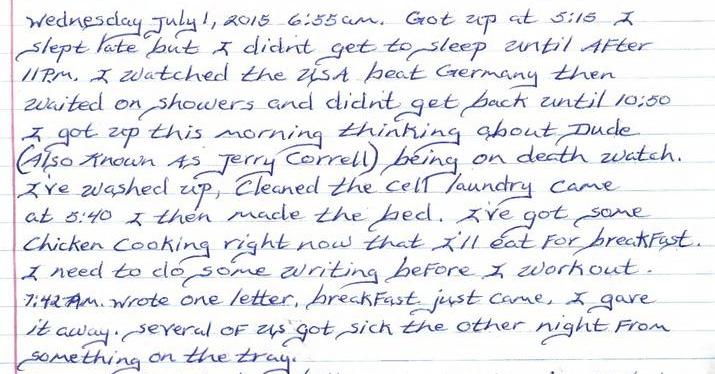 Wednesday July 1, 2015 6:55am. Got up at 5:15 I
slept late but I didnt get to sleep until After
11P.m. I watched the USA beat Germany then
waited on showers and didnt get back until 10:50
I got up this morning thinking about Dude
(Also Known As Jerry Correll) being on death watch.
I've washed up, Cleaned the cell laundry came
at 5:40 I then made the bed. I've got some
Chicken Cooking right now that I'll eat For breakFast.
I need to do some writing before I workout.
7:42 AM. wrote one letter, breakFast just came, I gave
it away. several OF us got sick the other night From
something on the tray.